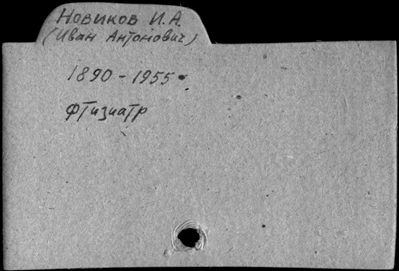 Новиков И.А.
(Иван Антонович)
1890-1955
фтизиатр